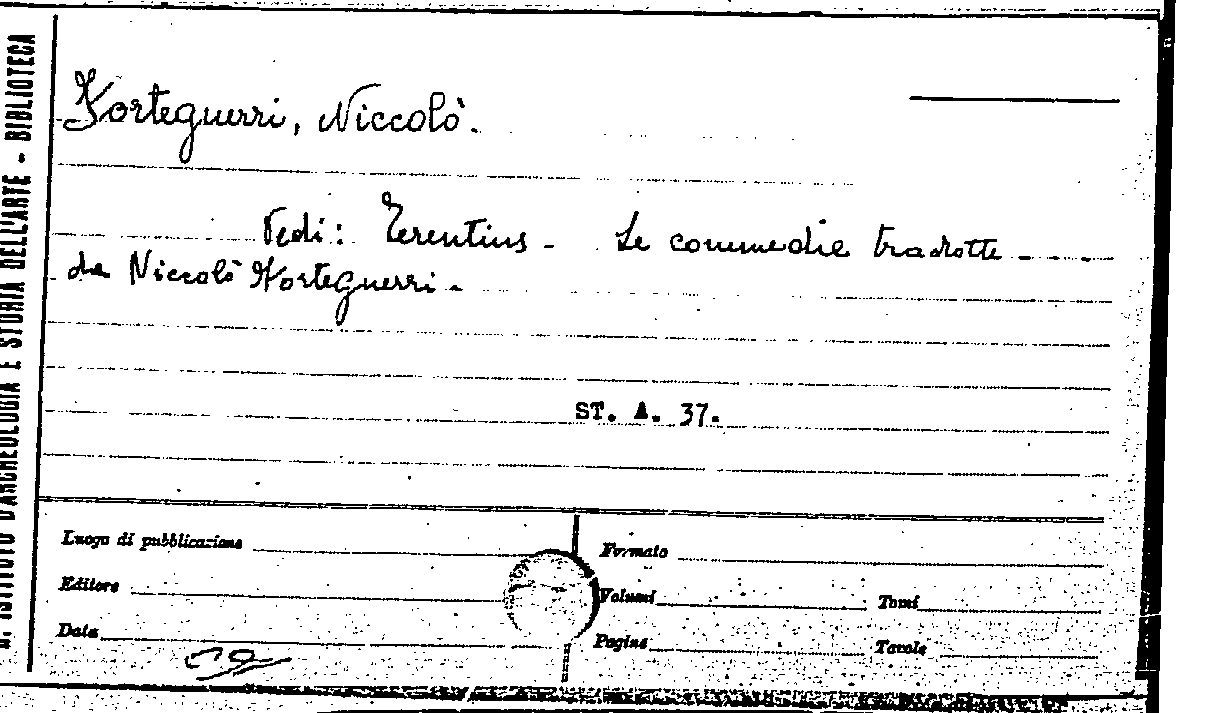 Forteguerri, Niccolò.
Vedi: Terentius - Le commedie tradotte - - - -
da Niccolò Forteguerri -
ST. A. 37.
Luogo di pubblicazione
Formato
Editore
Volumi
Tomi
Data
Pagine
Tavole
R. ISTITUTO D'ARCHEOLOGIA E STORIA DELL'ARTE - BIBLIOTECA